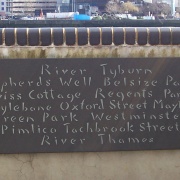 River Tyburn
Shepherds Well Belsize Pa
iss Cottage Regents Par
rylebone Oxford Street Mayf
reen Park Westminste
Pimlico Tachbrook Street
River Thames